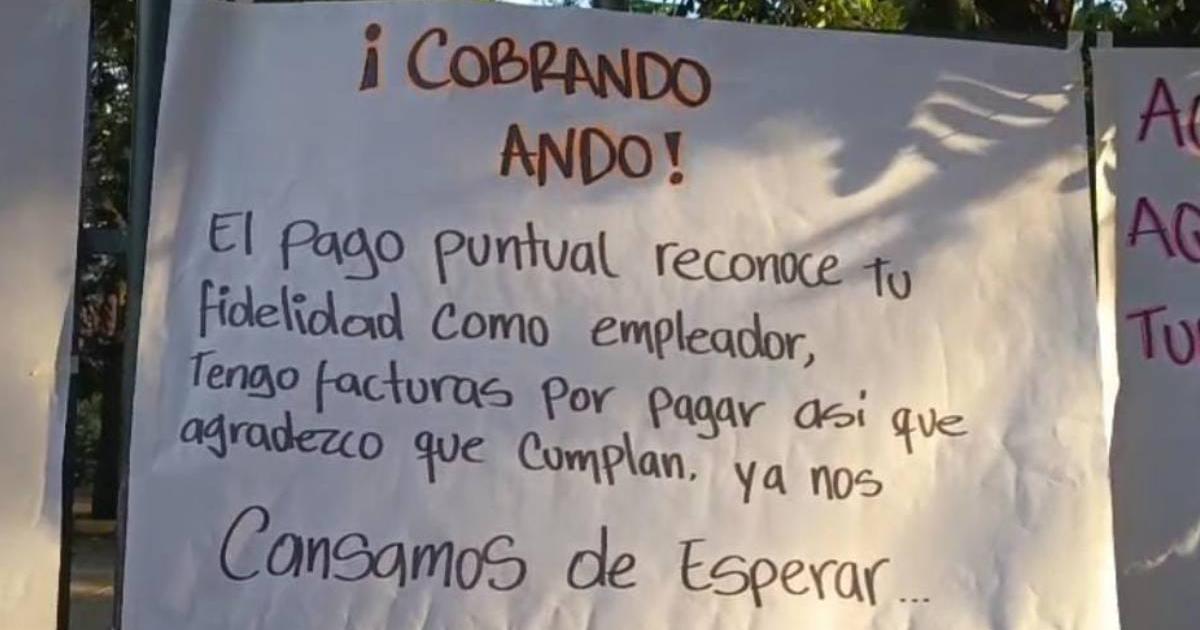 ¡COBRANDO
ANDO!
El pago puntual reconoce tu
fidelidad como empleador,
Tengo facturas por pagar asi que
agradezco que cumplan. ya nos
Cansamos de Esperar...